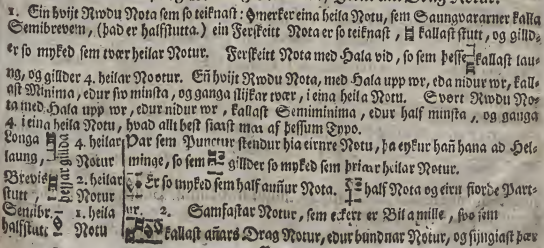 1. Ein hvijt Rwdu Nota sem so teiknast: merker eina heila Notu, sem Saungvararner kalla
Semibrevem, (það er halfstutta.) ein Ferskeitt Nota er so teiknast, kallast stutt, og gilld-
er so myked sem tvær heilar Notur. Ferskeitt Nota med Hala vid, so sem þesse kallast laun-
ng, og gillder 4. heilar Nootur. Eñ hvijt Rwdu Nota, med Hala upp wr, eda nidur wr, kall-
ast Minima, edur sw minsta, og ganga slijkar tvær, i eina heila Notu. Svört Rwdu No-
ta med Hala upp wr, edur nidur wr, kallast Semiminima, edur half minsta, og ganga
4. i eina heila Notu, hvad allt best siaist maa af þessum Typo.
Longa 4. heilar Þar sem Punctur stendur hia eirnre Notu, þa eykur hañ hana ad Hel-
laung, Notur minge, so sem gillder so myked sem þriar heilar Notur.
Brevis 2. heilar Er so myked sem half añur Nota. half Nota og eirn fiorde Part-
stutt, Notur ur. 2. Samfastar Notur, sem ekert er Bil a mille, svo sem
Semibr. 1. heila
halfstutt Notu kallast añars Drag Notur, edur bundnar Notur, og sijngiast þær